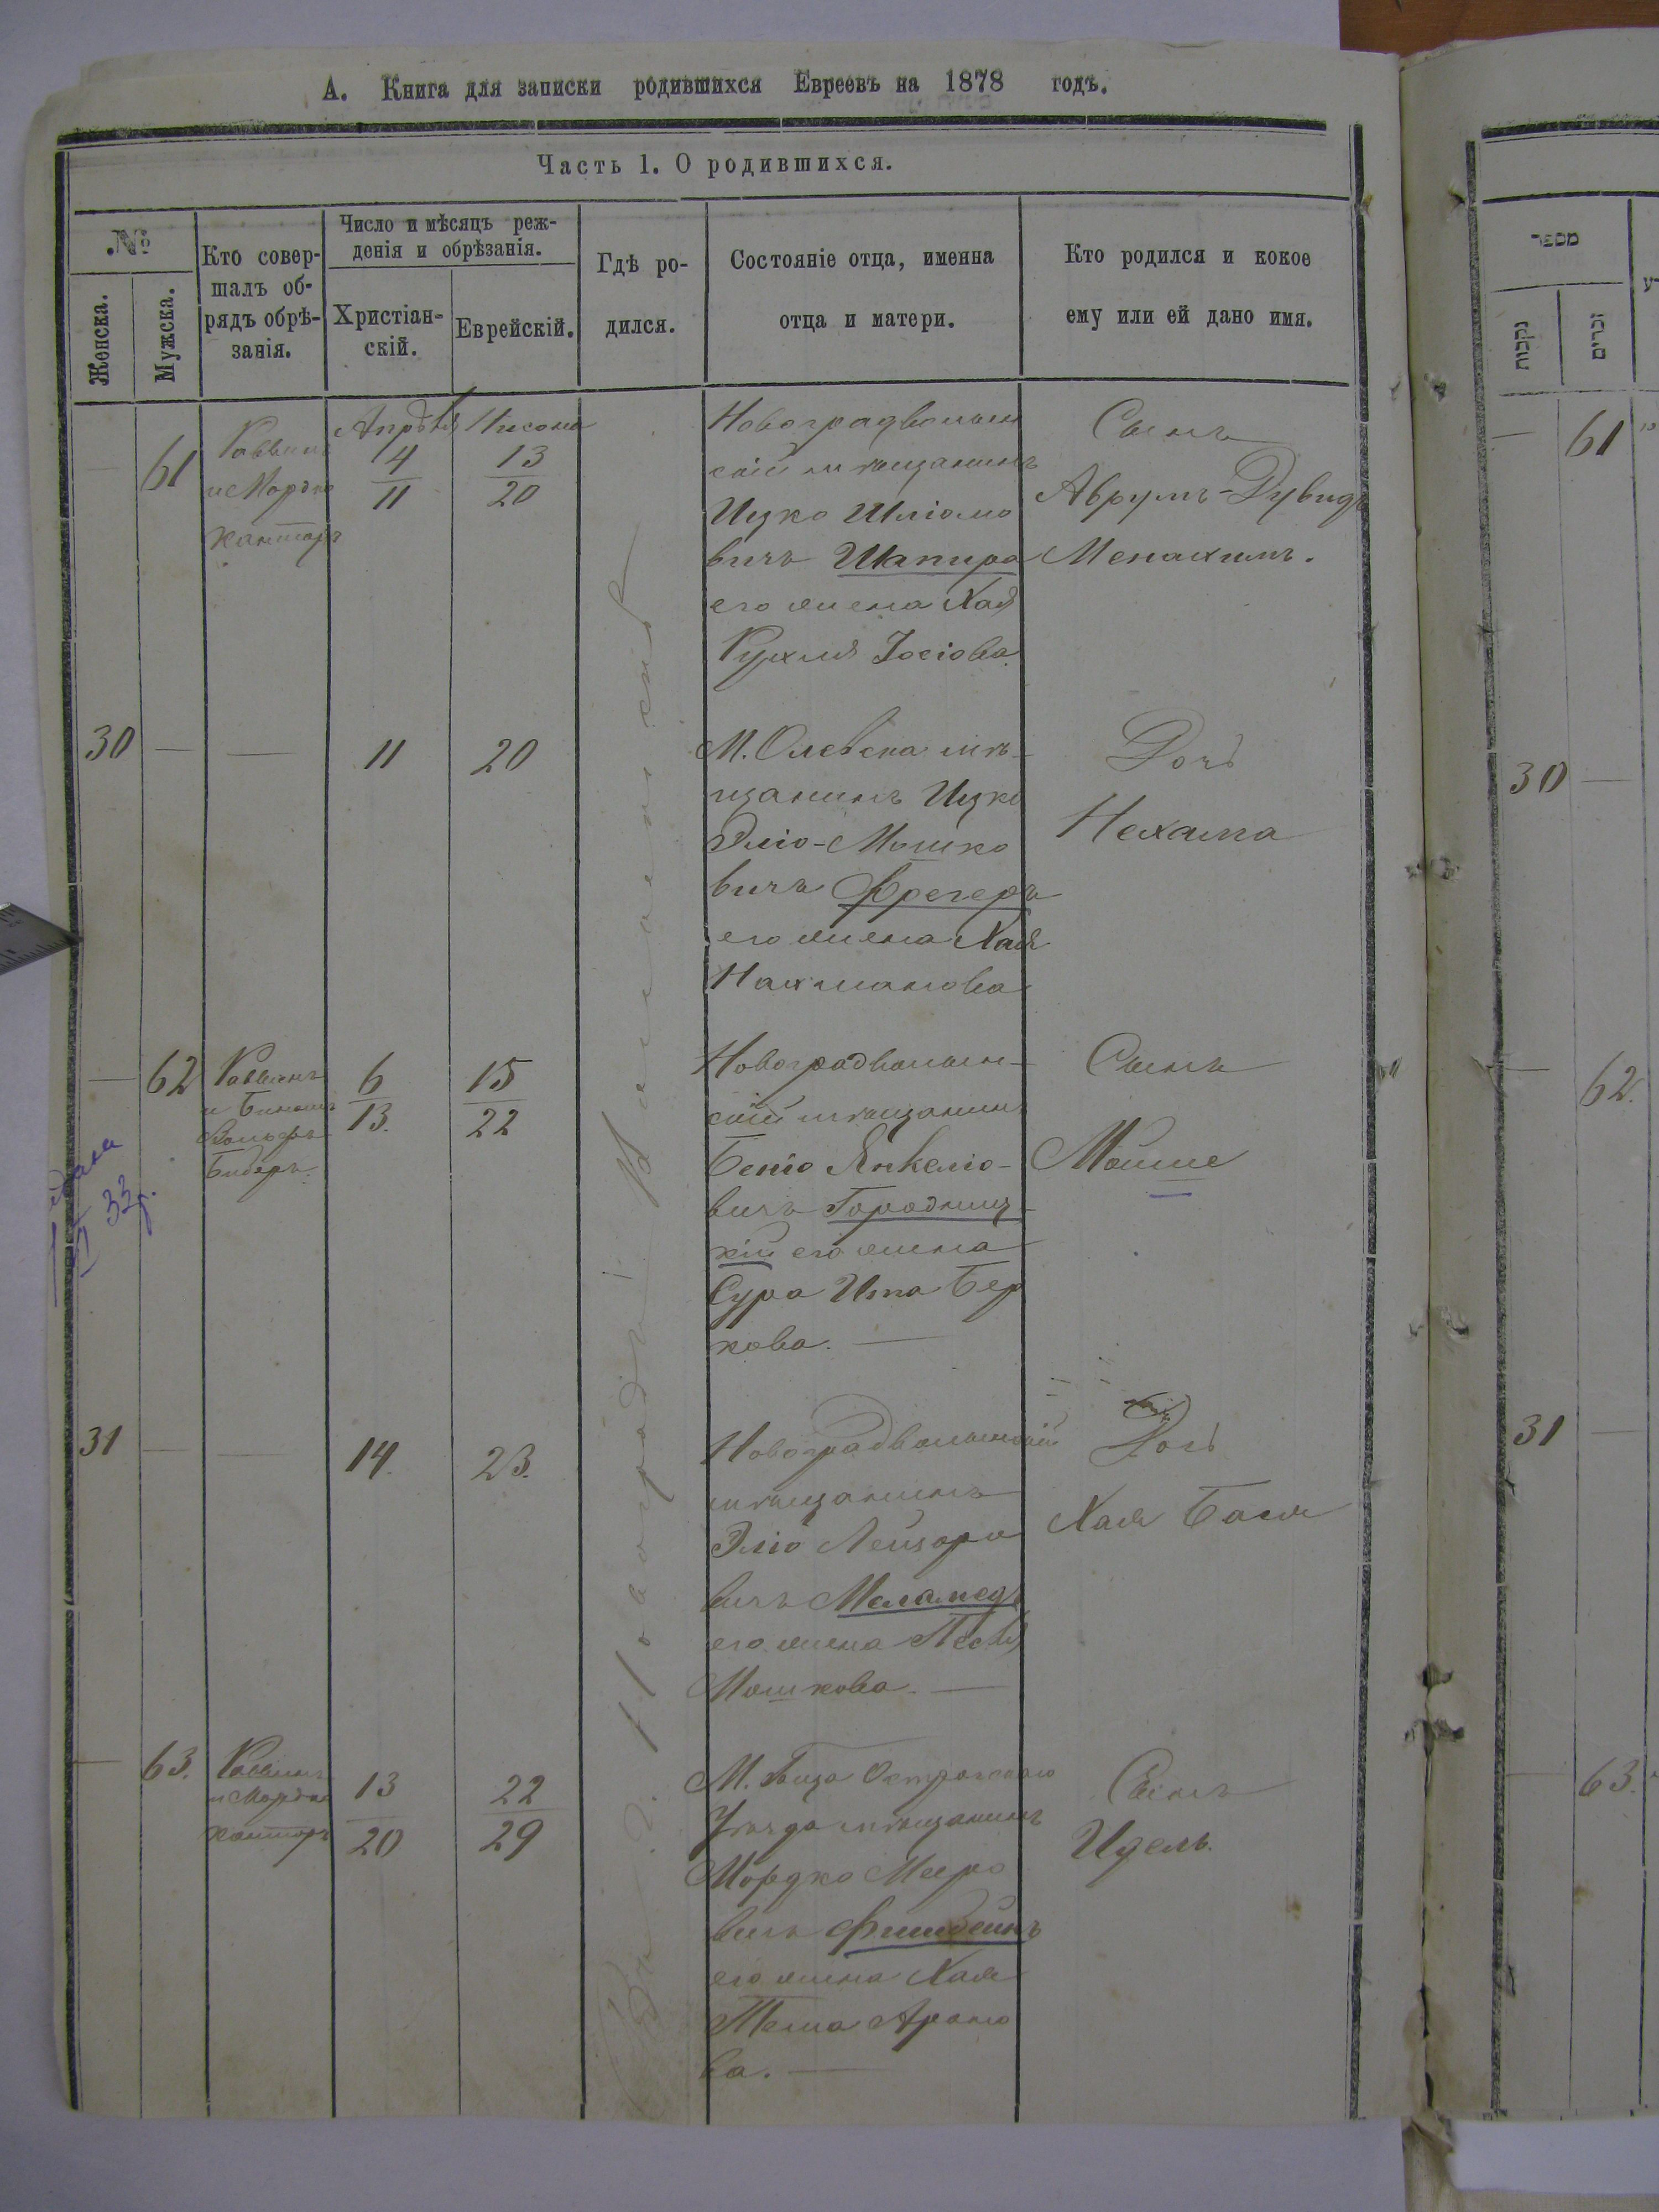 А. Книга для записки родившихся Евреевъ на 1878 годъ.
Часть 1. О родившихся.
№
Женска.
Мужска.
Кто совер-
шалъ об-
рядъ обрѣ-
занія.
Число и мѣсяцъ реж-
денія и обрѣзанія.
Христіан-
скій.
Еврейскій.
Гдѣ ро-
дился.
Состояніе отца, именна
отца и матери.
Кто родился и кокое
ему или ей дано имя.
Въ г. Новоградъ Волынскѣ
61
Раввинъ
и Мордко
Канторъ
Апрѣля
4
11
Нисона
13
20
Новоградволын
скій мѣщанинъ
Ицко Шліомо
вичъ Шапира
его жена Хая
Рухля Іосіова
Сынъ
Аврумъ-Дувидъ
Менахимъ.
30
11
20
М. Олевска мѣ-
щанинъ Ицко
Эліо-Мошко
вичъ Фрегеръ
его жена Хая
Нахманова
Дочь
Нехама
62
Раввинъ
и
Вольфъ
6
13.
15
22
Новоградволын-
скій мѣщанинъ
Беніо Янкеліо-
вичъ Городниц-
кій его жена
Сура Ита Бер
кова.
Сынъ
Мошше
31
14.
23.
Новоградволынскій
мѣщанинъ
Эліо Лейзоро
вичъ Меламедъ
его жена Песя
Мошкова.
Дочь
Хая Бася
63.
Раввинъ
и Мордко
Канторъ
13
20
22
29
М. Гоща Острогскаго
Уѣзда мѣщанинъ
Мордко Мееро
вичъ Фишбейнъ
его жена Хая
Тема Ароно
ва.
Сынъ
Идель.
מספר
נקבות
זכרים
61
30
62.
31
63.